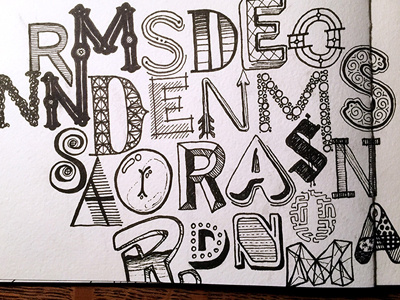 RMSDEO
NNDENMS
SAORASN
RDNUMA